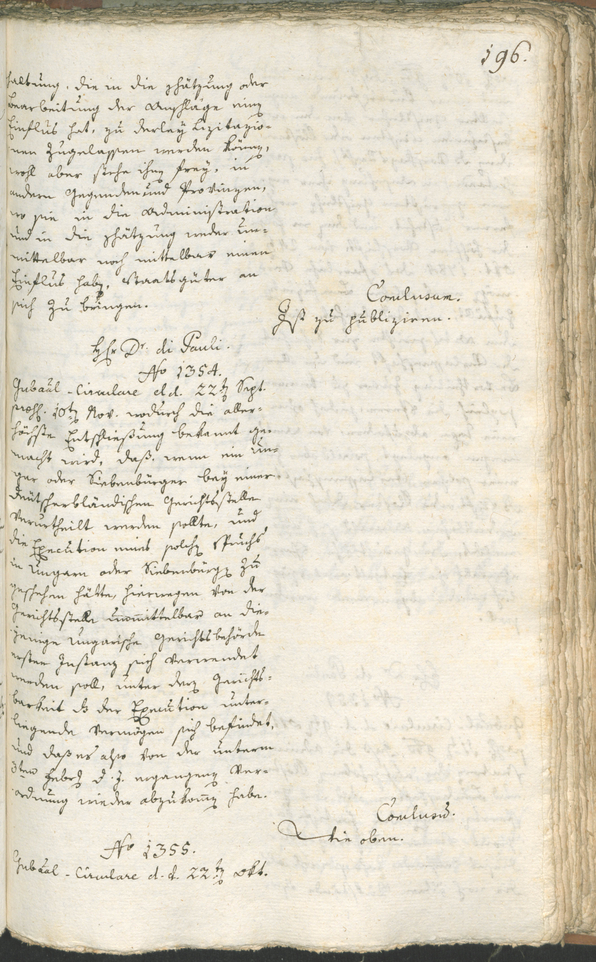 196.
haltung, die in die Schätzung oder
Bearbeitung der Anschläge einen
Einfluß hat, zu derley Lizitazio-
nen zugelassen werden können,
wohl aber stehe ihnen frey, in
andern Gegenden und Provinzen,
wo sie in die Administration
und in die Schätzung weder un-
mittelbar noch mittelbar einen
Einfluß haben, Staatsgüter an
sich zu bringen.
Conclusum.
Ist zu publiziren.
Hr Dr. di Pauli.
No 1354.
Gubàal-Circulare d.d. 22ten Sept.
10ten Nov. wodurch die aller-
höchste Entschließung bekannt ge-
macht wird, daß, wenn ein Un-
gar oder Siebenbürger bey einer
deutscherbländischen Gerichtsstelle
verurtheilt werden sollte, und
die Execution eines solchen Spruchs
in Ungarn oder Siebenbürgen zu
geschehen hätte, hierwegen von der
Gerichtsstelle unmittelbar an die-
jenige ungarische Gerichtsbehörde
erster Instanz sich verwendet
werden soll, unter deren Gerichts-
barkeit das der Execution unter-
liegende Vermögen sich befindet,
und daß es also von der unterm
3ten d. J. ergangenen Ver-
ordnung wieder abzukommen habe.
Conclusum.
Wie oben.
No 1355.
Gubàal-Circulare d.d. 22ten Okt.